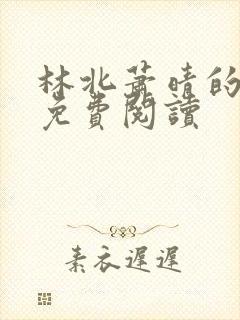 林北蕭晴的
免費閱讀
素衣遲遲